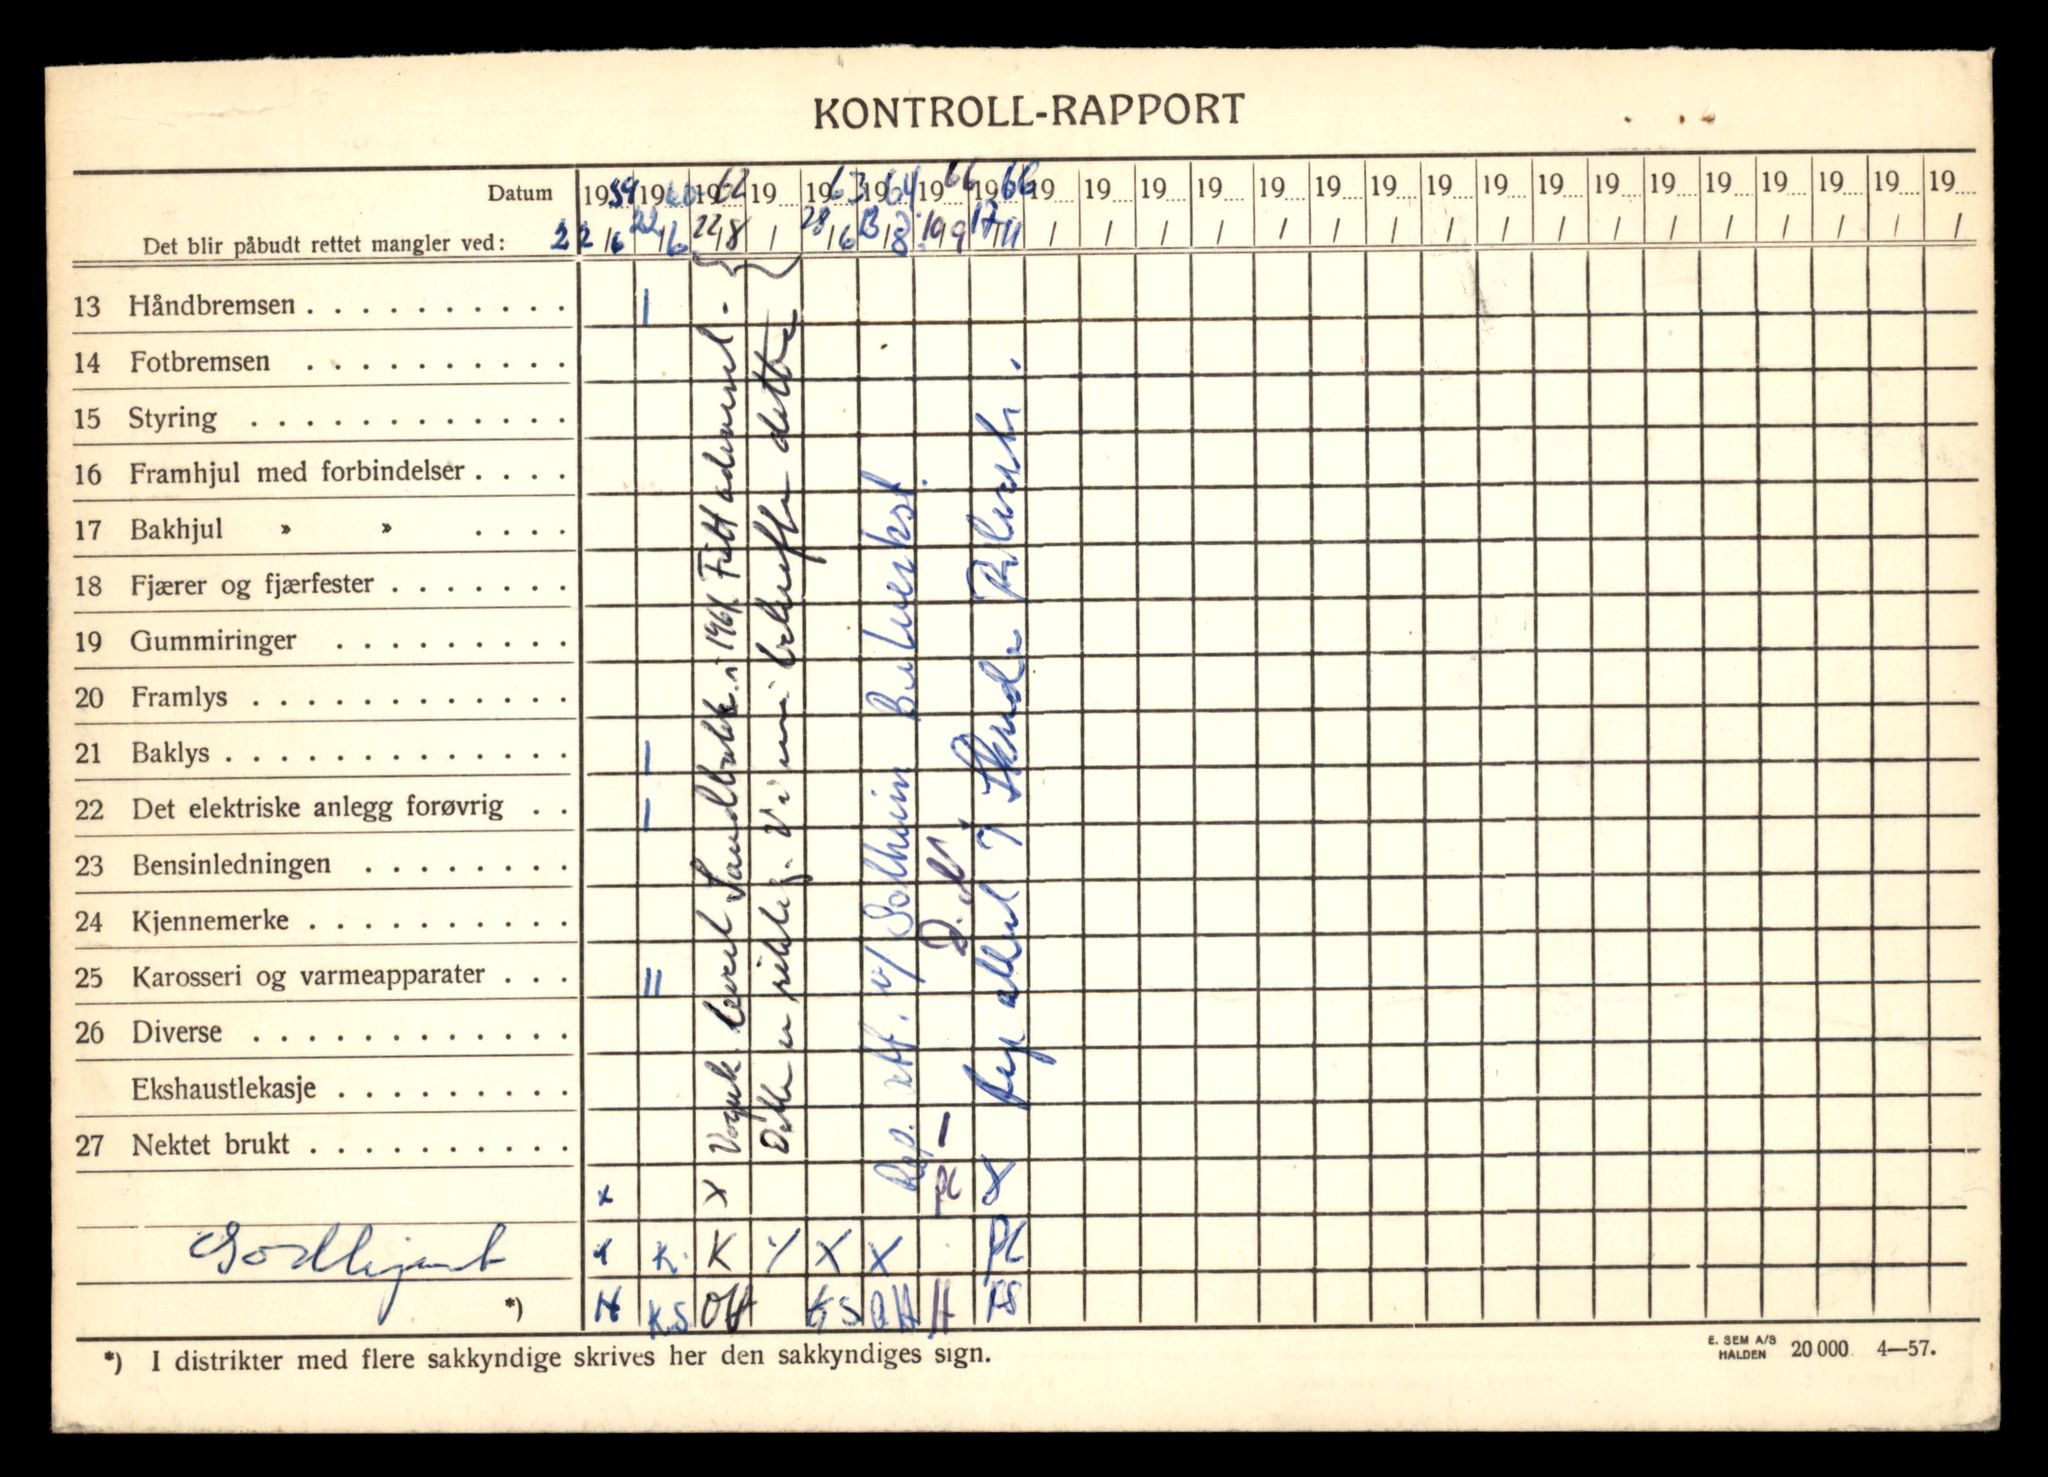 KONTROLL-RAPPORT
Datum 1959 1960 1962 19 1963 1964 1966 1966 19 19 19 19 19 19 19 19 19 19 19 19 19 19 19 19 19
Det blir påbudt rettet mangler ved: 22/6 22/6 22/8 / 28/6 13/8 19/9 17/11 / / / / / / / / / / / / / / / / /
13 Håndbremsen I
14 Fotbremsen
15 Styring
16 Framhjul med forbindelser
17 Bakhjul » »
18 Fjærer og fjærfester
19 Gummiringer
20 Framlys
21 Baklys I
22 Det elektriske anlegg forøvrig I
23 Bensinledningen
24 Kjennemerke
25 Karosseri og varmeapparater II
26 Diverse
Ekshaustlekasje
27 Nektet brukt
Sandbakk i 1961. Fått advarsel.
Dette er riktig. Vi
dette
Rep. att. v/ Solheim Bilverkst.
Rep attest
x x Pl X
Godkjent x K. K / X X Pl
*) H KS OH KS OH H FS
*) I distrikter med flere sakkyndige skrives her den sakkyndiges sign.
E. SEM A/S
HALDEN 20 000 4—57.